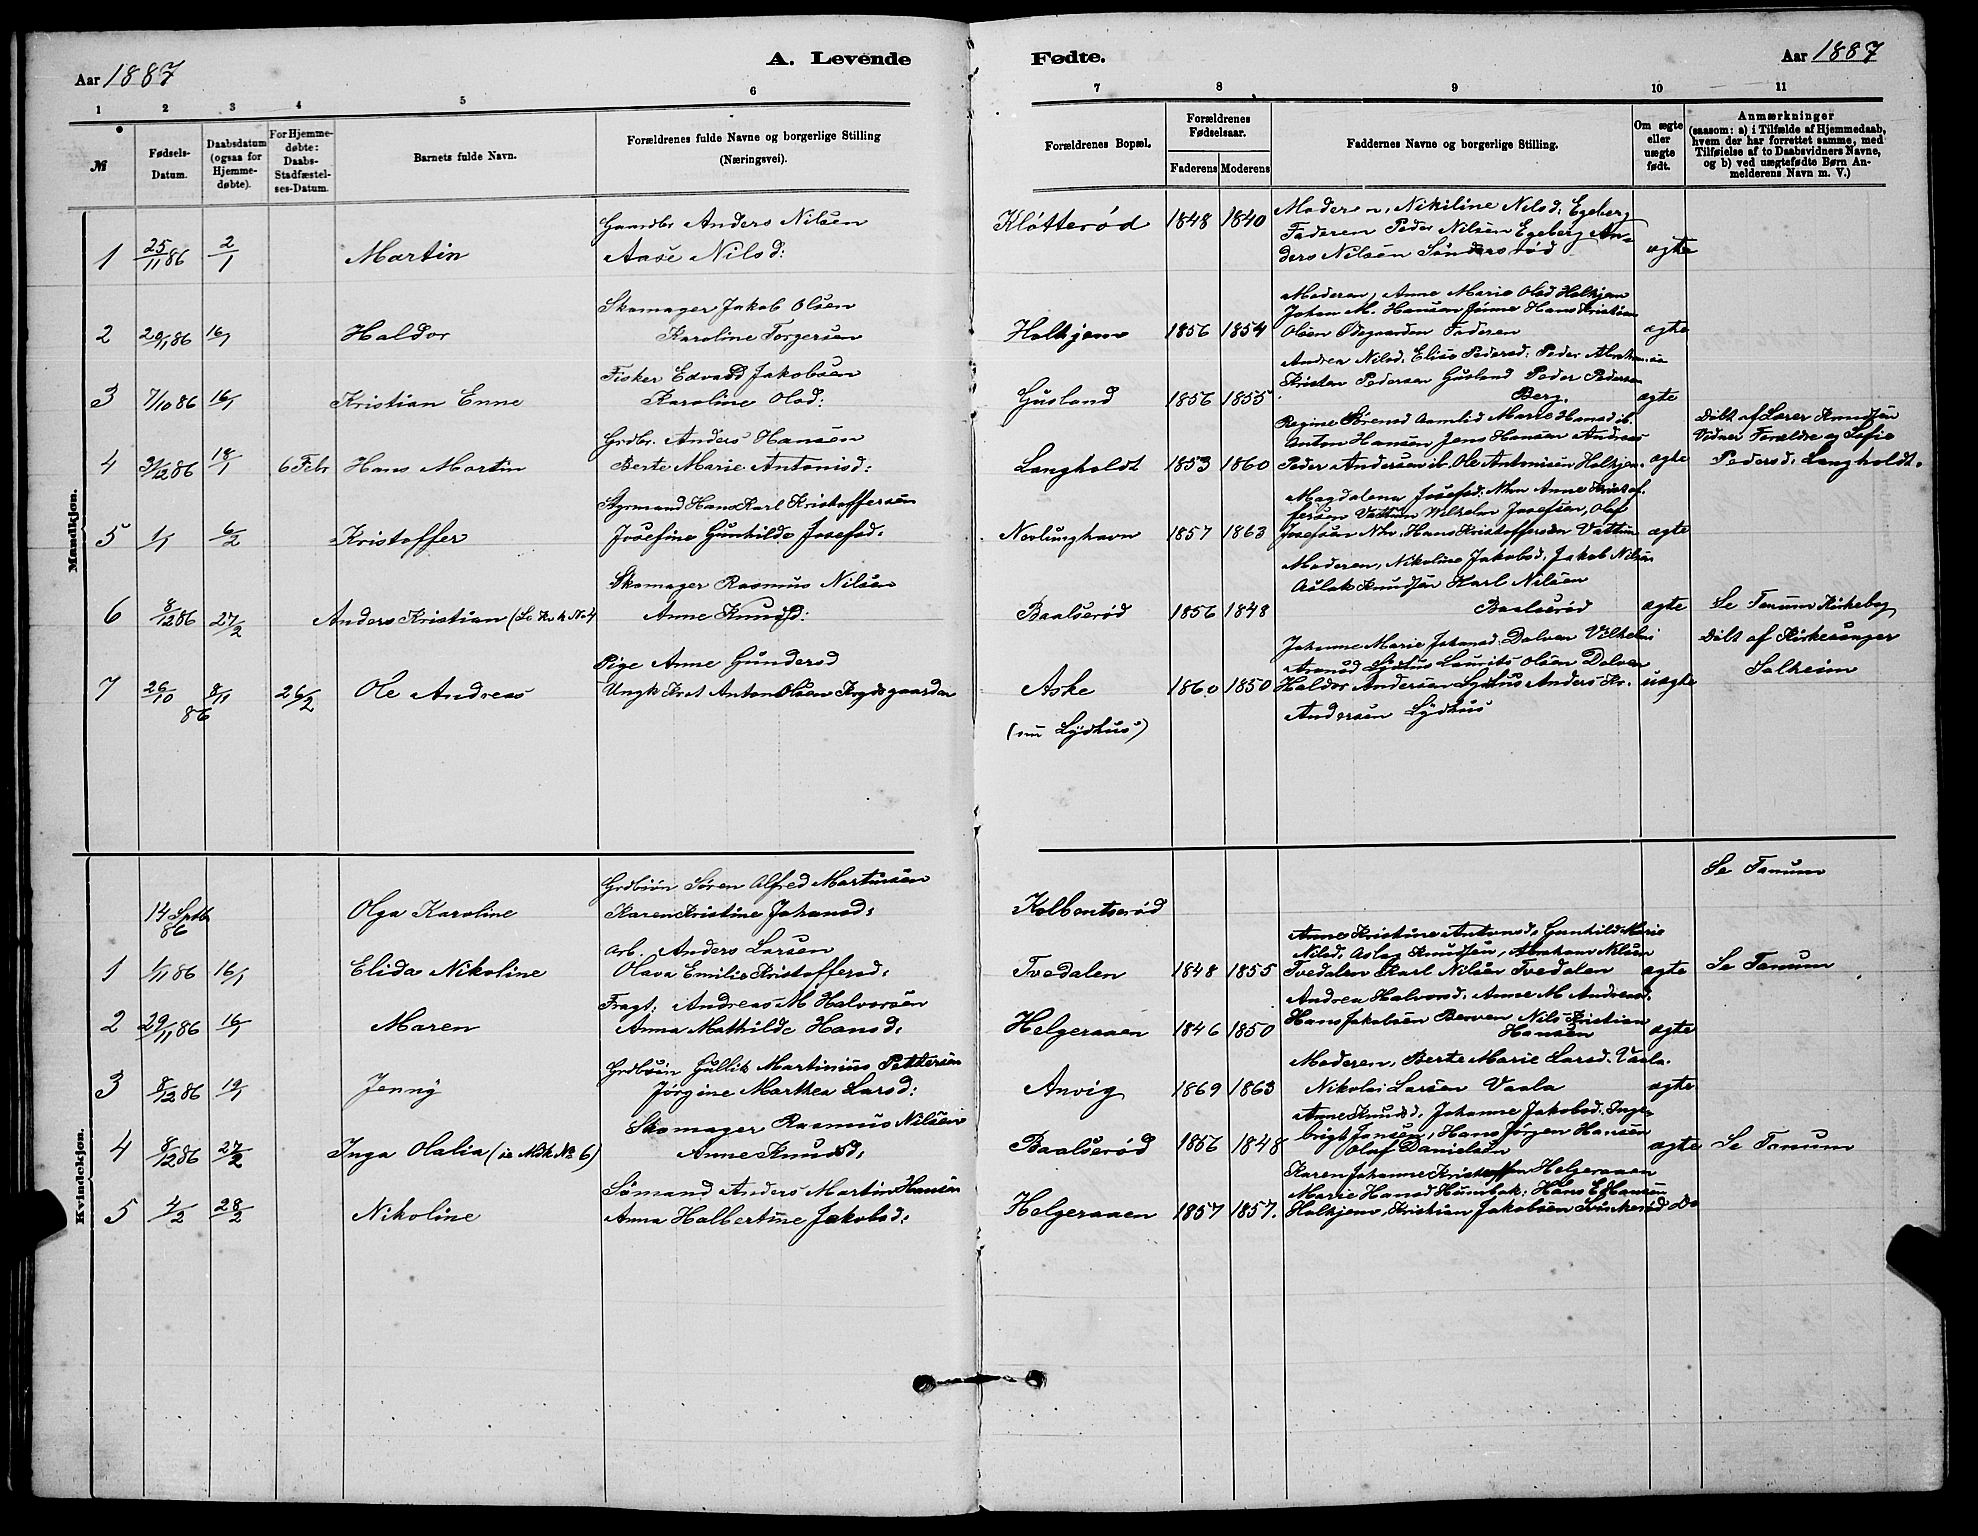 Aar 1887
A. Levende
Fødte.
Aar 1887
1 2 3 4 5 6 7 8 9 10 11
№
Fødsels-Datum.
Daabsdatum (ogsaa for Hjemme-døbte).
For Hjemme-døbte: Daabs-Stadfæstel-ses-Datum.
Barnets fulde Navn.
Forældrenes fulde Navne og borgerlige Stilling (Næringsvei).
Forældrenes Bopæl.
Forældrenes Fødselsaar.
Faderens Moderens
Faddernes Navne og borgerlige Stilling.
Om ægte eller uægte født.
Anmærkninger (saasom: a) i Tilfælde af Hjemmedaab, hvem der har forrettet samme, med Tilføielse af to Daabsvidners Navne, og b) ved uægtefødte Børn An-melderens Navn m. V.)
Mandkjøn.
Gaardbr Anders Nilsen
1 25/11 86 2/1 Martin Aase Nilsd:
Kløtterød 1848 1840
Moderen, Nikiline Nilsd: Egeberg
Faderen Peder Nilsen Egeberg An-
ders Nilsen Søndersrød
ægte
Skomager Jakob Olsen
2 20/11 86 16/1 Haldor Karoline Torgersen
Holkjem 1856 1854
Moderen, Anne Marie Olsd Holkjem
Johan M. Hansen Jønne Hans Kristian
Olsen Ødegaarden Faderen
ægte
Fisker Edvard Jakobsen
3 7/10 86 16/1 Kristian Enne Karoline Olsd:
Gusland 1856 1855
Andrea Nilsd: Elise Pedersd: Peder Abrahamsen
Kristen Pedersen Gusland Peder Pedersen
Berg.
ægte
Grdbr. Anders Hansen
4 31/12 86 18/1 6 Febr Hans Martin Berte Marie Antonisd:
Langholdt 1853 1860
Regine Sörensd Aamlid Marie Hansd ib.
Anton Hansen Jens Hansen Andreas
Peder Andersen ib. Ole Antonisen Holkjem.
ægte
Döbt af Lærer Knudsen
Vidner Forældre og Sofie
Pedersd: Langholdt.
Styrmand Hans Karl Kristoffersen
5 1/1 6/2 Kristoffer Josefine Gunhilde Josefsd:
Nevlunghavn 1857 1863
Magdalena Josefsd: Nhv Anne Kristof-
fersen Vattum Wilhelm Josefsen, Olaf
Josefsen Nhv. Hans Kristoffersen Vattum
ægte
Skomager Rasmus Nilsen
6 8/12 86 27/2 Anders Kristian (Se Kv.k No 4 Anne Knudsd:
Baalserød 1856 1848
Moderen, Nikoline Jakobsd, Jakob Nilsen
Aslak Knudsen Karl Nilsen
Baalserød
ægte
Se Tanum Kirkebog
Pige Anne Gundersd
7 26/10 8/11 86 26/2 Ole Andreas Ungk Krist Anton Olsen Frydsgaarden
Aske
(nu Lydhus)
1860 1850
Johanne Marie Johansd: Dolven Vilhelmi
Lydhus Laurits Olsen Dolven
Haldor Andersen Lydhus Anders Kr.
Andersen Lydhus
uægte
Döbt af Kirkesanger
Solheim
Kvindekjøn.
Grdbsön Sören Alfred Martinsen
14 Septb 86 Olga Karoline Karen Kristine Johansd:
Kolbentserød
Se Tanum
Arb. Anders Larsen
1 1/11 86 16/1 Elida Nikoline Olava Emilie Kristoffersd:
Tvedalen 1848 1855
Anne Kristine Antonsd: Gunhild Marie
Nilsd, Aslag Knudsen, Abraham Nilsen
Tvedalen Karl Nilsen Tvedalen
ægte
Se Tanum
Fragt: Andreas M Halvorsen
2 29/11 86 16/1 Maren Anna Mathilde Hansd:
Helgeraaen 1846 1850
Andrea Halvorsd: Anne M Andreasd:
Hans Jakobsen Berven Nils Kristian
Hansen
ægte
Grdbsön Gullik Martinius Pettersen
3 8/12 86 19/1 Jenny Jørgine Marthea Larsd:
Anvig 1869 1863
Moderen, Berte Marie Larsd. Vaala.
Nikolai Larsen Vaala
ægte
Skomager Rasmus Nilsen
4 8/12 86 27/2 Inga Olalia (se Mdk № 6) Anne Knudsd:
Baalserød 1856 1848
Anne Knudsd, Johanne Jakobsd. Inge-
brigt Jonsen, Hans Jørgen Hansen
Olaf Danielsen
ægte
Se Tanum
Sömand Anders Martin Hansen
5 4/2 28/2 Nikoline Anna Halbertine Jakobsd:
Helgeraaen 1857 1857.
Karen Johanne Kristoffersen Helgeraaen
Marie Hansd Hummerbak: Hans E Hansen
Holkjem, Kristian Jakobsen Svinkerød
Do